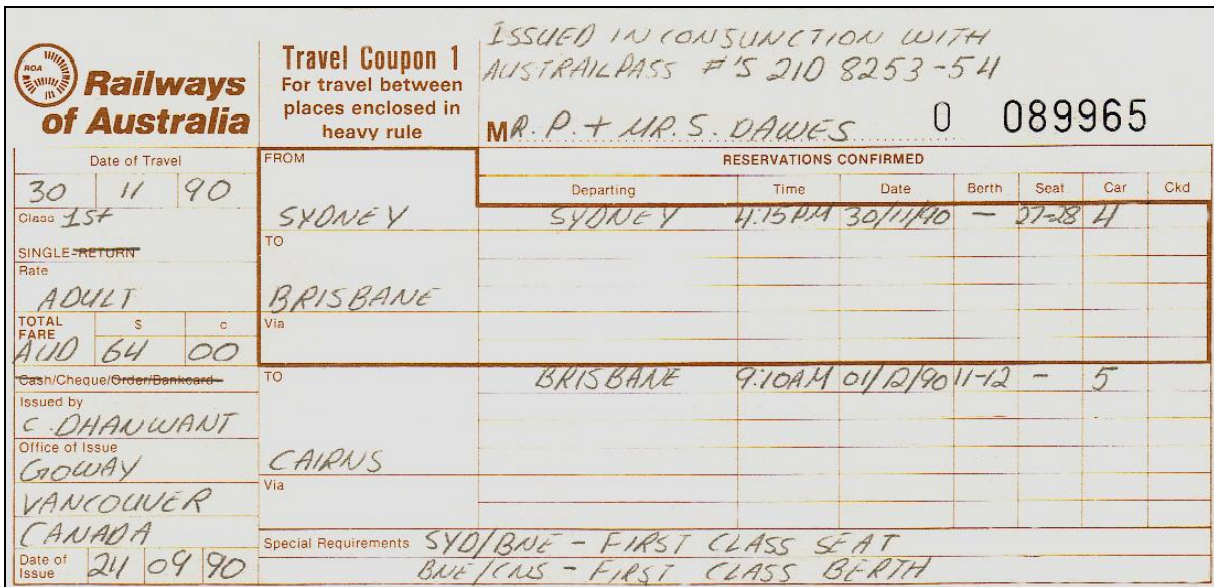 ISSUED IN CONJUNCTION WITH
AUSTRAILPASS #'S 210 8253-54
ROA
Railways
of Australia
Travel Coupon 1
For travel between
places enclosed in
heavy rule
MR. P. + MR. S. DAWES 0 089965
Date of Travel
30 11 90
Class 1st
SINGLE-RETURN
Rate
ADULT
TOTAL FARE $ c
AUD 64 00
Cash/Cheque/Order/Bankcard
Issued by
C. DHANWANT
Office of Issue
GOWAY
VANCOUVER
CANADA
Date of Issue 24 09 90
FROM
SYDNEY
TO
BRISBANE
Via
TO
CAIRNS
Via
RESERVATIONS CONFIRMED
Departing Time Date Berth Seat Car Ckd
SYDNEY 4:15PM 30/11/90 - 27-28 4
BRISBANE 9:10AM 01/12/90 11-12 - 5
Special Requirements SYD/BNE - FIRST CLASS SEAT
BNE/CNS - FIRST CLASS BERTH